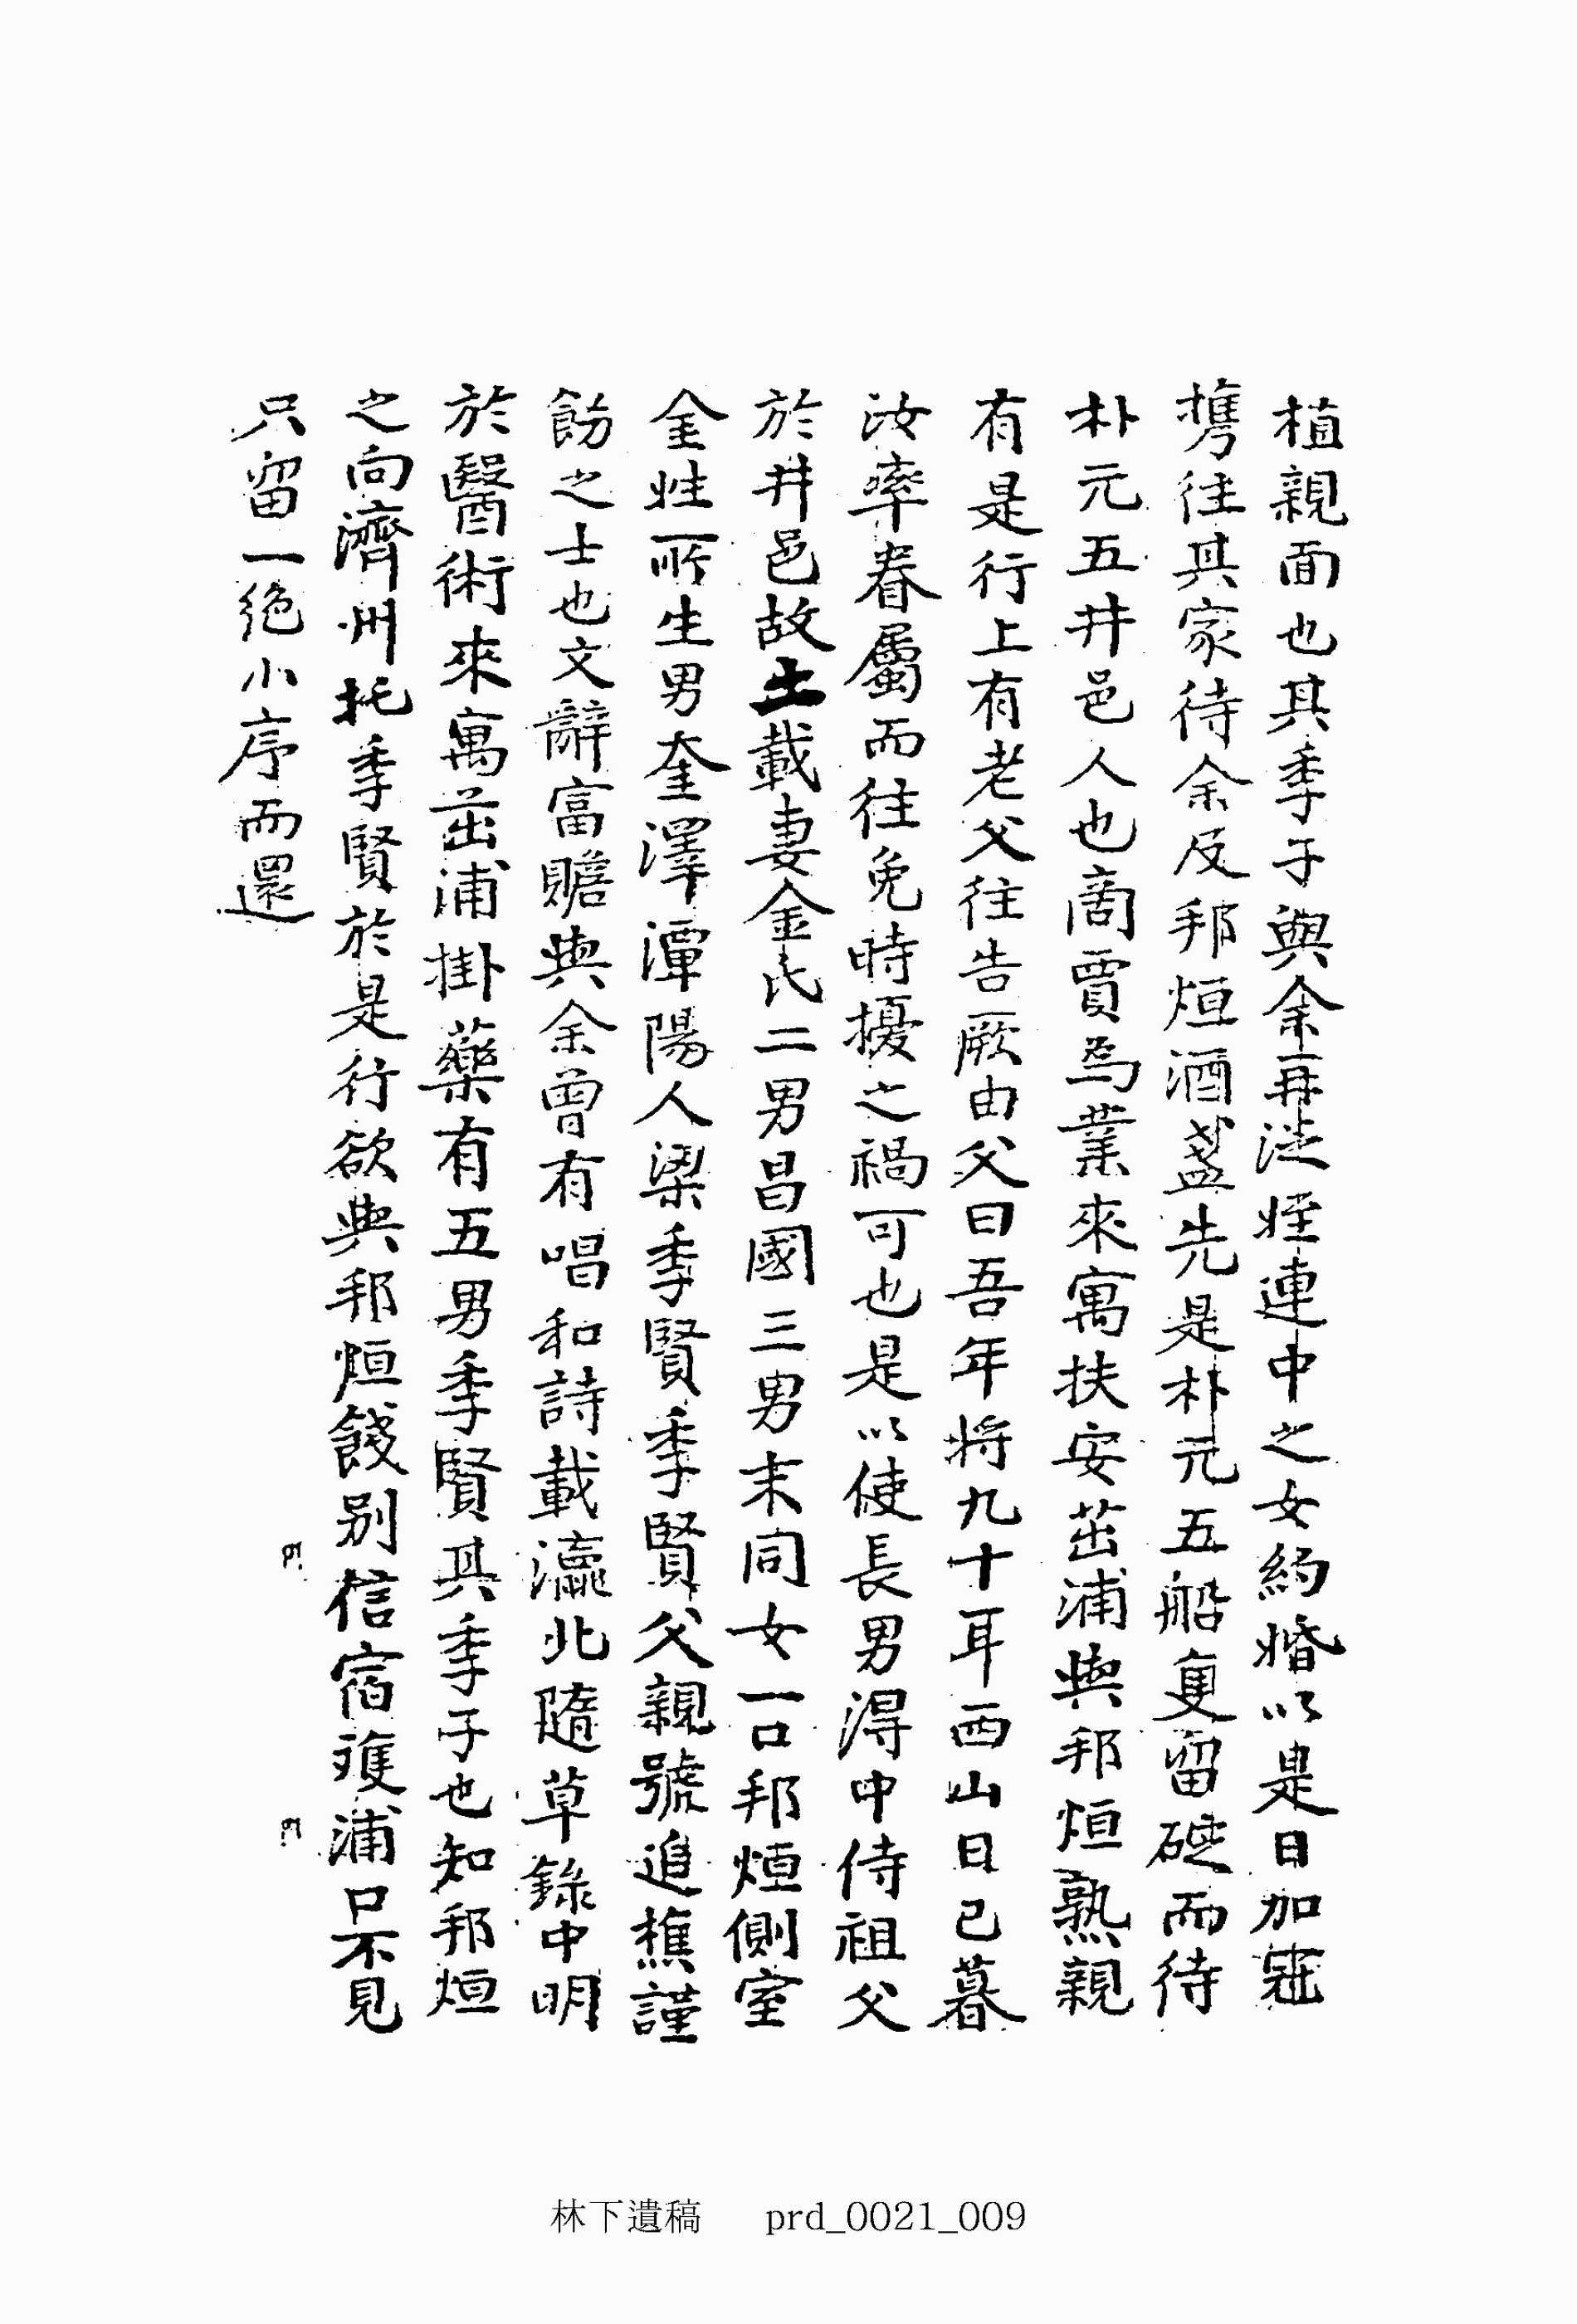 植親面也其季子與余再從姪連中之女約婚以是日加冠
携往其家待余及邦烜酒盞先是朴元五船更留碇而待
朴元五井邑人也商賈爲業來寓扶安茁浦與邦烜熟親
有是行上有老父往告厥由父曰吾年將九十耳西山日已暮
汝率眷屬而往免時擾之禍可也是以使長男淂中侍祖父
於井邑故土載妻金氏二男昌國三男末同女一口邦烜側室
金姓所生男奎澤潭陽人梁季賢季賢父親號追樵謹
飭之士也文辭富贍與余曾有唱和詩載瀛北隨草錄中明
於醫術來寓茁浦掛藥有五男季賢其季子也知邦烜
之向濟州托季賢於是行欲與邦烜餞別信宿後浦口不見
只留一絶小序而還
林下遺稿 prd_0021_009